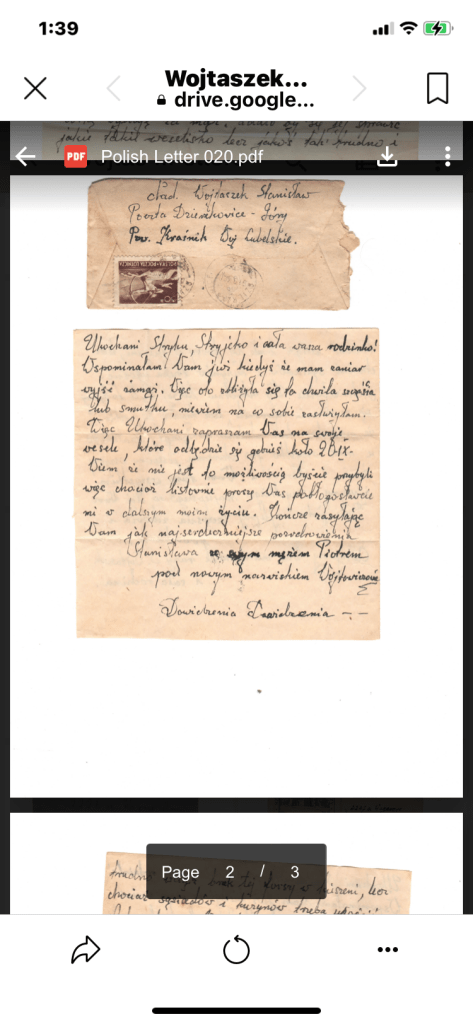 1:39
Wojtaszek...
drive.google...
jakie takie weselisko lecz jakoś tak trudno i
PDF Polish Letter 020.pdf
Nad. Wojtaszek Stanisław
Poczta Dzierzkowice - Góry
Pow. Kraśnik Woj Lubelskie.
POLSKA POCZTA LOTNICZA
Ukochani Stryku, Stryjciu i cała wasza rodzinko!
Wspominałam Wam już kiedyś że mam zamiar
wyjść zamąż. Więc oto zbliżyła się ta chwila szczęścia
lub smutku, niewiem na co sobie zasłużyłam.
Więc Ukochani zapraszam Was na swoje
wesele, które odbędzie się gdzieś koło 20 IX-
Wiem że nie jest to możliwością byście przybyli
więc chociaż listownie proszę Was pobłogosławcie
mi w dalszym moim życiu. Kończę zasyłając
Wam jak najserdeczniejsze pozdrowienia
Stanisława ze swym mężem Piotrem
pod nowym nazwiskiem Wójtowiczowie
Dowidzenia Dowidzenia - -
Page 2 / 3
w kieszeni, lecz
chociaż sąsiadów i kuzynów trzeba